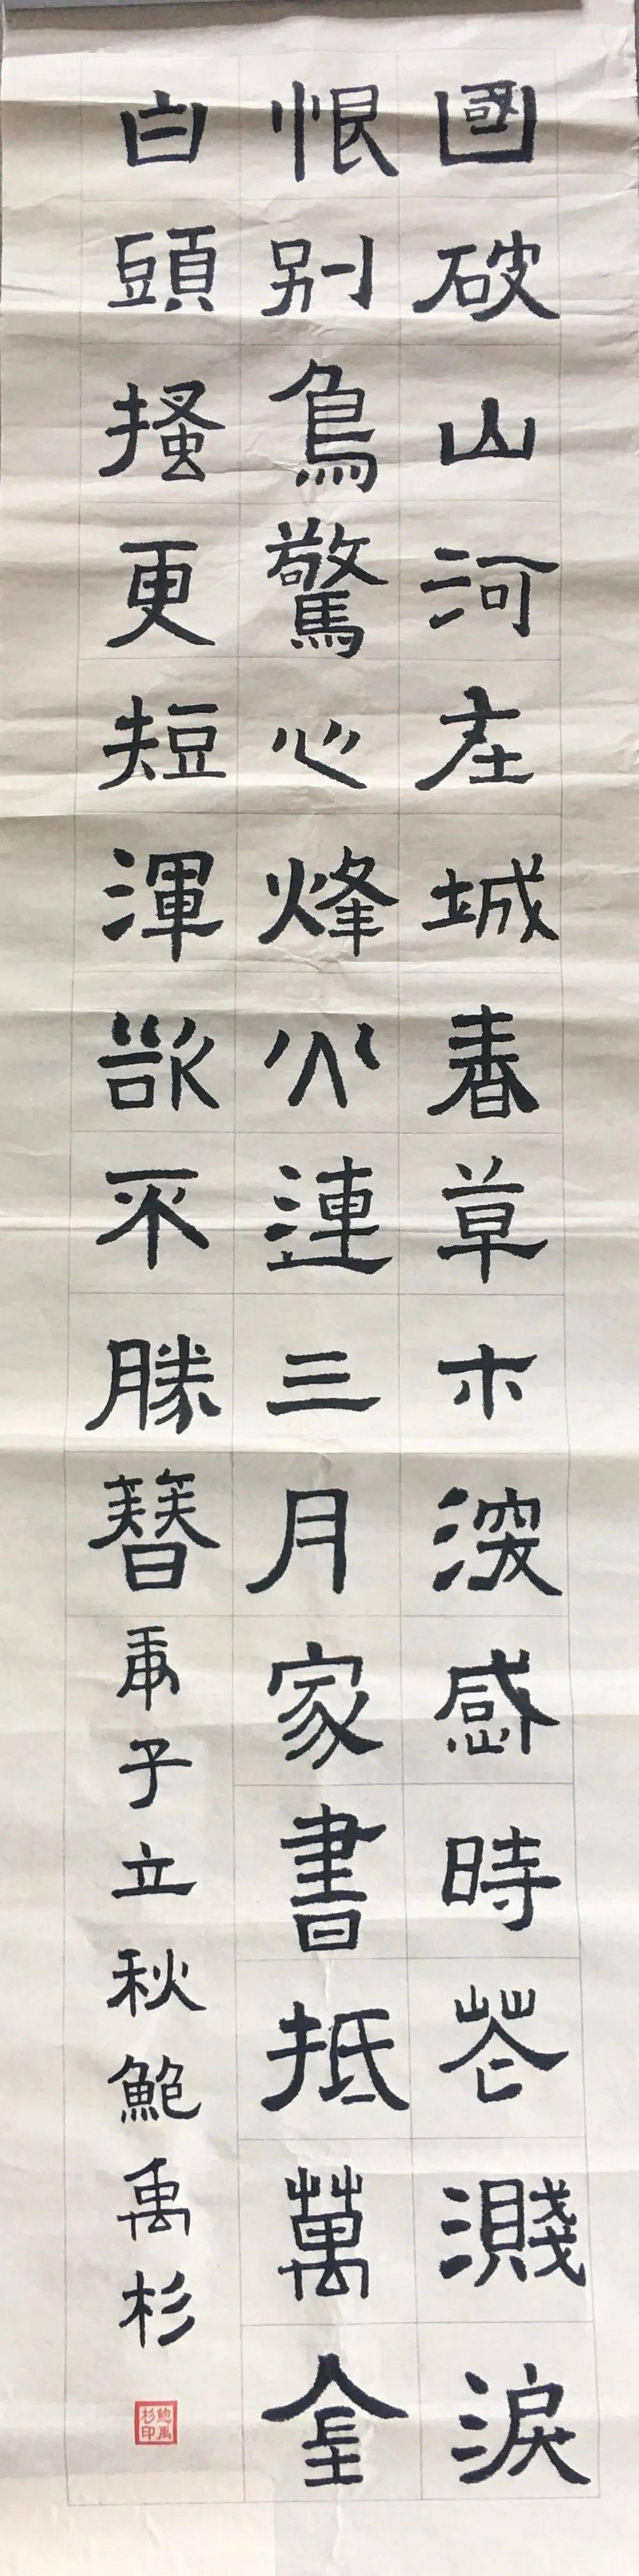 國破山河在城春草木深感時花濺淚
恨別鳥驚心烽火連三月家書抵萬金
白頭搔更短渾欲不勝簪庚子立秋鮑禹杉
鮑禹杉印